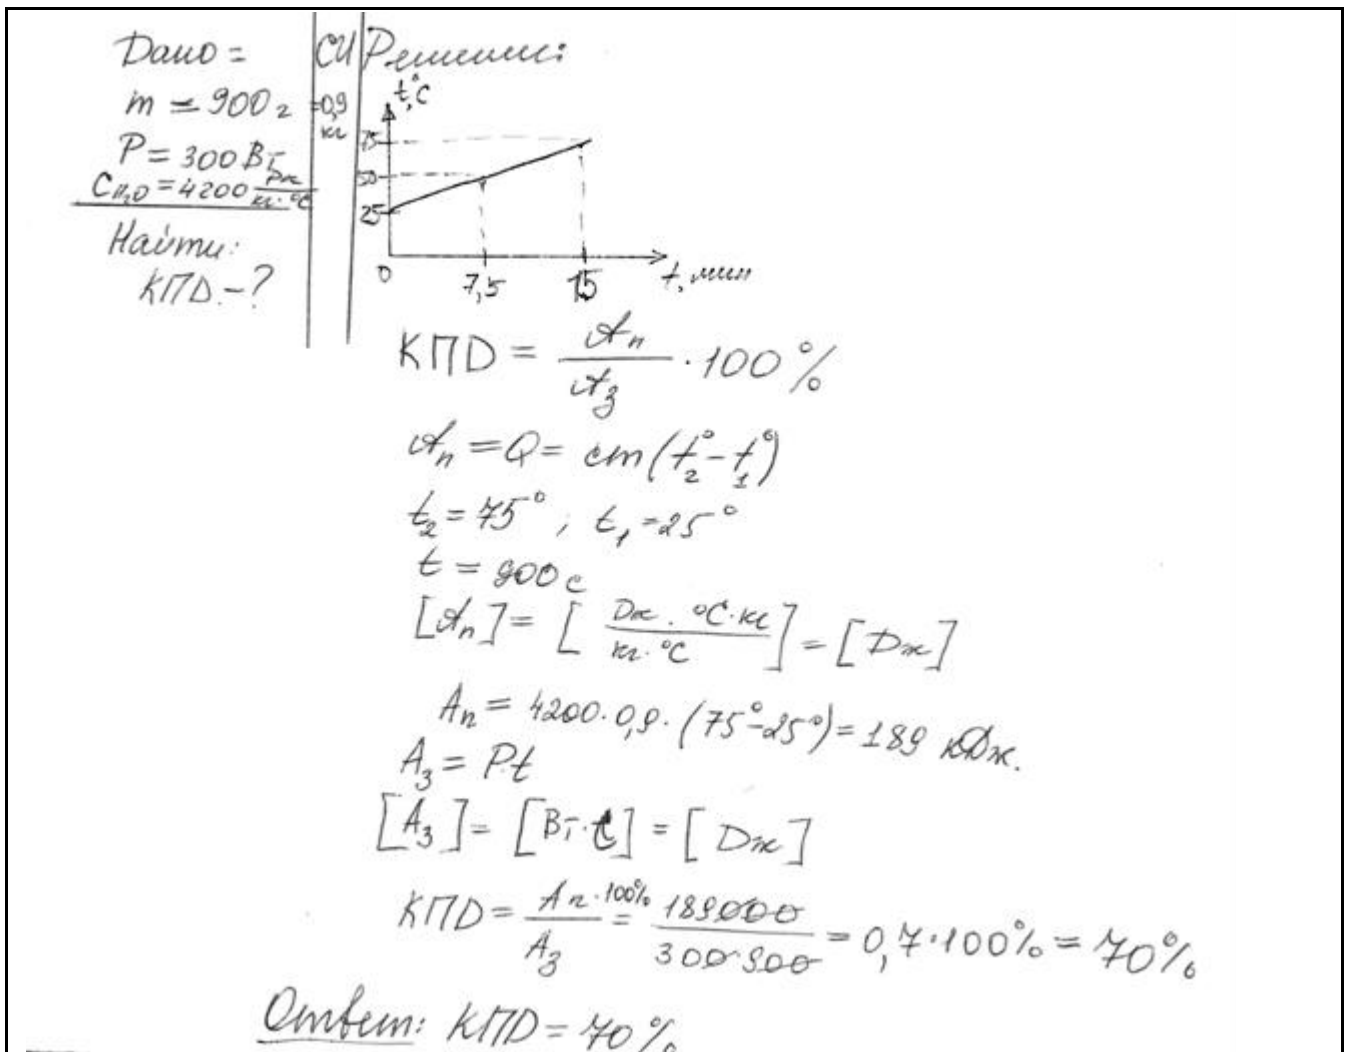 Дано =
m = 900 г
P = 300 Вт
C_H₂O = 4200 Дж/кг·°C
Найти:
КПД - ?
СИ
=0,9
кг
Решение:
t,°C
75
50
25
0
7,5
15
t, мин
КПД = Aп/Aз · 100 %
Aп = Q = cm(t₂° - t₁°)
t₂ = 75°, t₁ = 25°
t = 900 с
[Aп] = [Дж · °C·кг / кг·°C] = [Дж]
Aп = 4200 · 0,9 · (75° - 25°) = 189 кДж.
Aз = P·t
[Aз] = [Вт·с] = [Дж]
КПД = Aп·100% / Aз = 189000 / 300·900 = 0,7·100% = 70%
Ответ: КПД = 70%